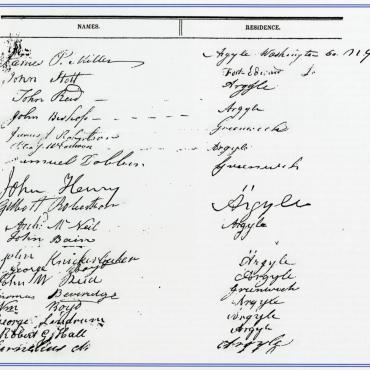 NAMES. RESIDENCE.
James P. Miller Argyle Washington Co. N Y
John Stott Fort Edward Do
John Reid Argyle
John Bishop Argyle
James Robertson Greenwich
Argyle
Samuel Dobbin Greenwich
John Henry
Gilbert Robertson Argyle
Archd. McNeil Argyle
John Bain
John Knickerbocker Argyle
George Boyd Argyle
John W Reid Greenwich
Thomas Beveridge Argyle
Wm Boyd Argyle
George Lendrum Argyle
Robert G Hall Argyle
Cornelius